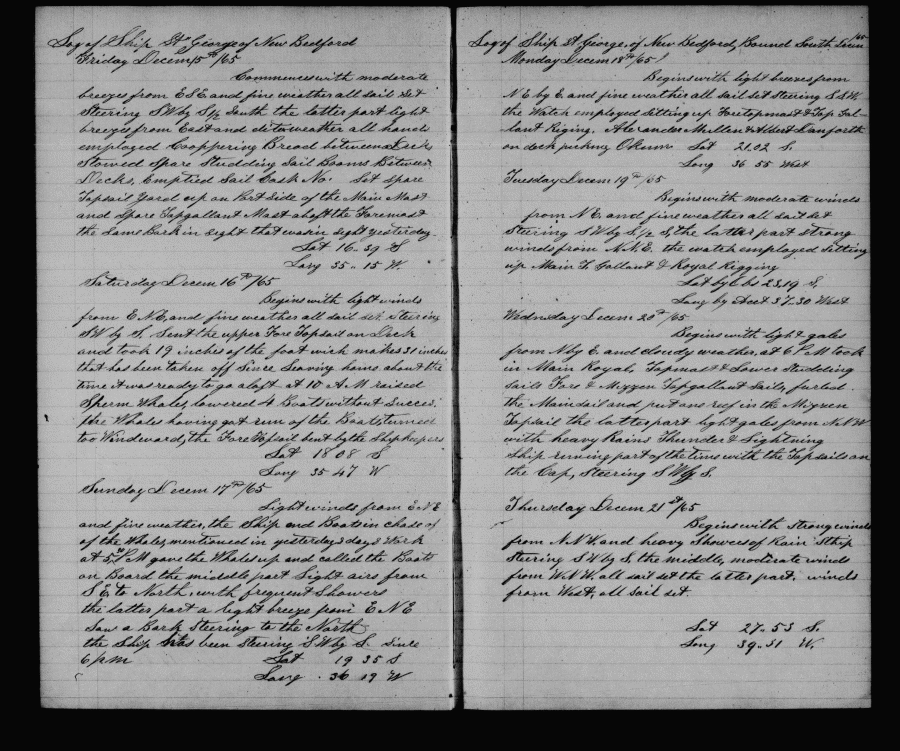 Log of Ship St George of New Bedford
Friday Decem 15th/65
Commences with moderate
breezes from ESE and fine weather all sail set
Steering SW by S 1/2 South the latter part light
breezes from East and ditto weather all hands
employed Coopering Bread between Deck
Stowed Spare Studding Sail Booms Between
Decks, Emptied Sail Cask No. Sot spare
Topsail Yard up on Port Side of the Main Mast
and Spare Topgallant Mast abaft the Foremast
the Same Bark in sight that was in sight yesterday.
Lat 16.. 39 S
Long 35.. 15 W.
Saturday Decem 16th/65
Begins with light winds
from ENE, and fine weather all sail set, steering
SW by S. Sent the upper Fore Topsail on Deck
and took 19 inches of the foot wich makes 31 inches
that has been taken off Since Leaving home about the
time it was ready to go aloft at 10 A.M raised
Sperm Whales, lowered 4 Boats without Succes.
the Whales having got run of the Boats turned
too Windward, the Fore Topsail bent by the Shipkeepers
Lat 18 08 S
Long 35 47 W
Sunday Decem 17th/65
Light winds from ENE
and fine weather, the Ship and Boats in chase of
of the Whales, mentioned in yesterdays days Work
at 5 PM gave the Whales up and called the Boats
on Board the middle part Light airs from
S E, to North, with frequent Showers
the latter part a light breeze from ENE
Saw a Bark Steering to the North
the Ship has been Steering S W by S. Since
6 pm Lat 19 35 S
Long . 36 19 W
Log of Ship St George, of New Bedford, Bound South
Monday Decem 18th/65
Begins with light breezes from
NE by E and fine weather all sail set Steering S S W
the Watch employed Setting up Foretopmast & Top Gal-
lant Riging. Alexander Millen & Albert Danforth
on deck picking Okum Lat 21.02 S.
Long 36 55 West
Tuesday Decem 19th/65
Begins with moderate winds
from N E, and fine weather all sail set
Steering S W by S 1/2 S, the latter part strong
winds from N.N.E. the watch employed Setting
up Main T. Gallant & Royal Rigging
Lat by obs 23.19 S.
Long by Acct 37.30 West
Wednsday Decem 20th/65
Begins with light gales
from N by E. and cloudy weather, at 6 P M took
in Main Royal, Topmast & Lower Studding
Sails Fore & Mizzen Topgallant Sails, furled
the Mainsail and put one reef in the Mizzen
Topsail the latter part light gales from N.N W
with heavy Rains Thunder & Lightning
Ship runing part of the time with the Topsails on
the Cap, Steering S W by S.
Thursday Decem 21st/65
Begins with strong winds
from N.N W. and heavy Showes of Rain Ship
Steering S W by S, the middle, moderate winds
from W.N W. all sail set the latter part, winds
from West, all sail set.
Lat 27.. 53 S.
Long 39.. 31 W.